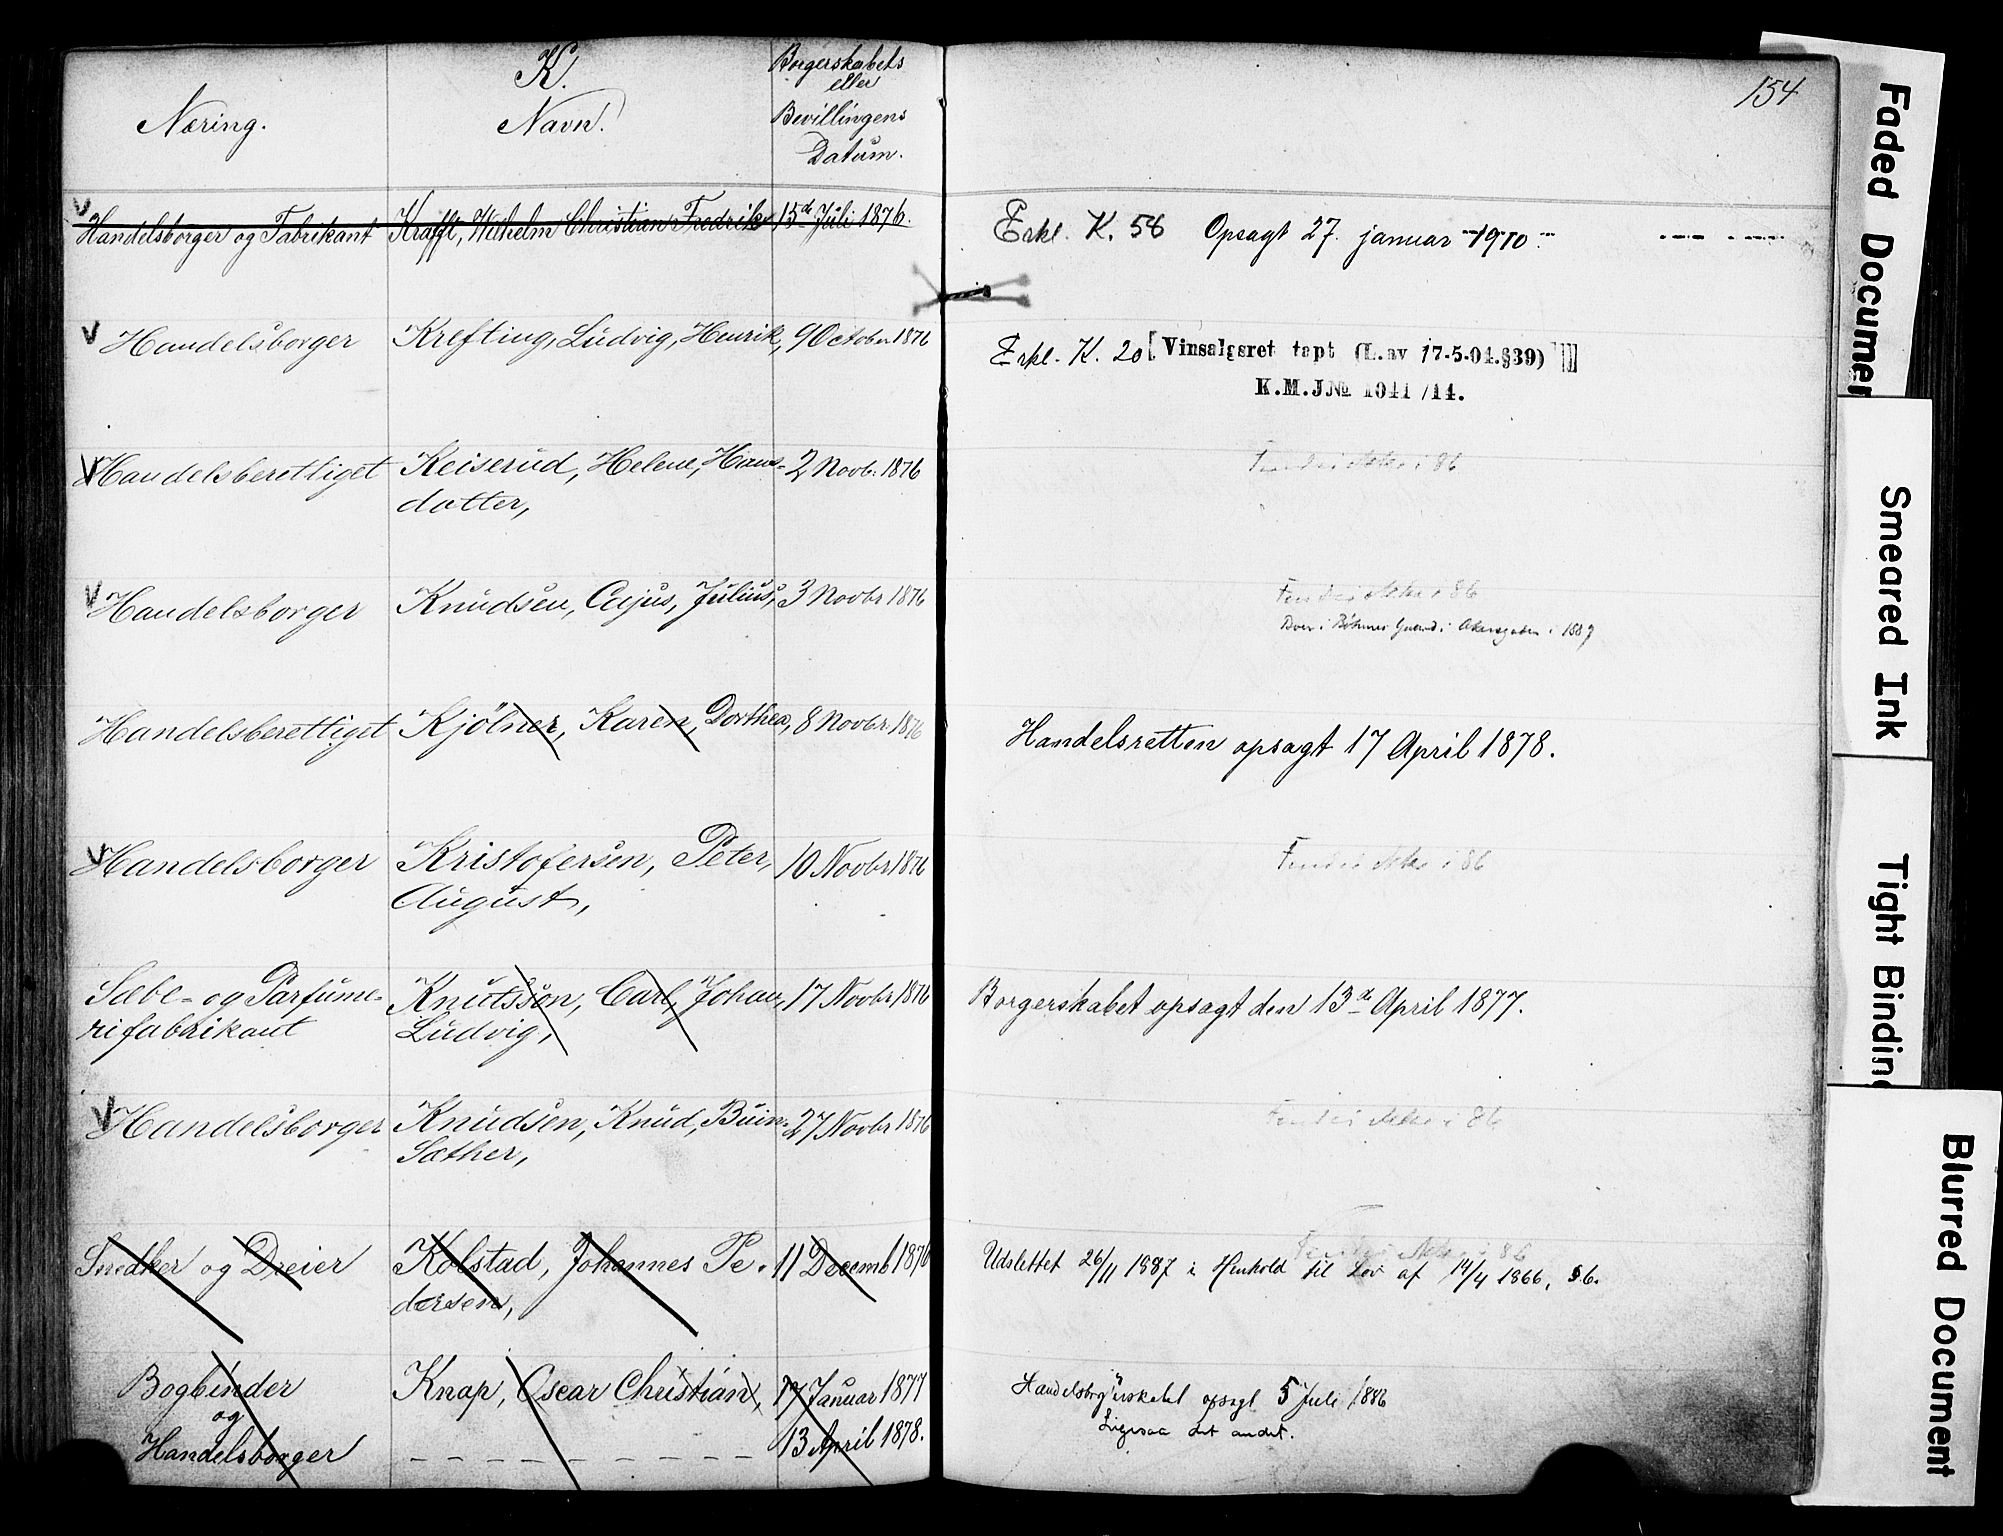 K.
Næring.
Navn.
Borgerskabets
eller
Bevillingens
Datum.
154
Handelsborger og Fabrikant Krafft, Wilhelm Christian Fredrik 15de Juli 1876.
Erkl. K. 58 Opsagt 27. januar 1910.
V Handelsborger Krefting, Ludvig, Henrik, 9 October 1876
Erkl. K. 20 [Vinsalgsret tapt (L. av 17-5-04. §39)]
K.M.J№ 1041/14.
V Handelsberettiget Keiserud, Helene, Hans- 2 Novb. 1876
datter,
i 86
V Handelsborger Knudsen, Cajus, Julius, 3 Novbr 1876
i 86
i 1887
Handelsberettiget Kjölner, Karen, Dorthea, 8 Novbr. 1876
Handelsretten opsagt 17 April 1878.
V Handelsborger Kristofersen, Peter, 10 Novbr 1876
August,
i 86
Sæbe- og Parfume- Knutsson, Carl, Johan, 17 Novbr 1876
rifabrikant Ludvig,
Borgerskabet opsagt den 13de April 1877.
V Handelsborger Knudsen, Knud, 27 Novbr 1876
Sæther,
i 86
Snedker og Dreier Kolstad, Johannes Pe- 11 Decemb 1876
dersen,
i 86
Udslettet 26/11 1887 i Henhold til Lov af 14/4 1866, § 6.
Bogbinder Knap, Oscar Christian, 17 Januar 1877
og
Handelsborger 13 April 1878.
Handelsborgerskabet opsagt 5 Juli 1886
Ligesaa det andet.
Faded Documen
Smeared Ink
Tight Bindin
Blurred Document